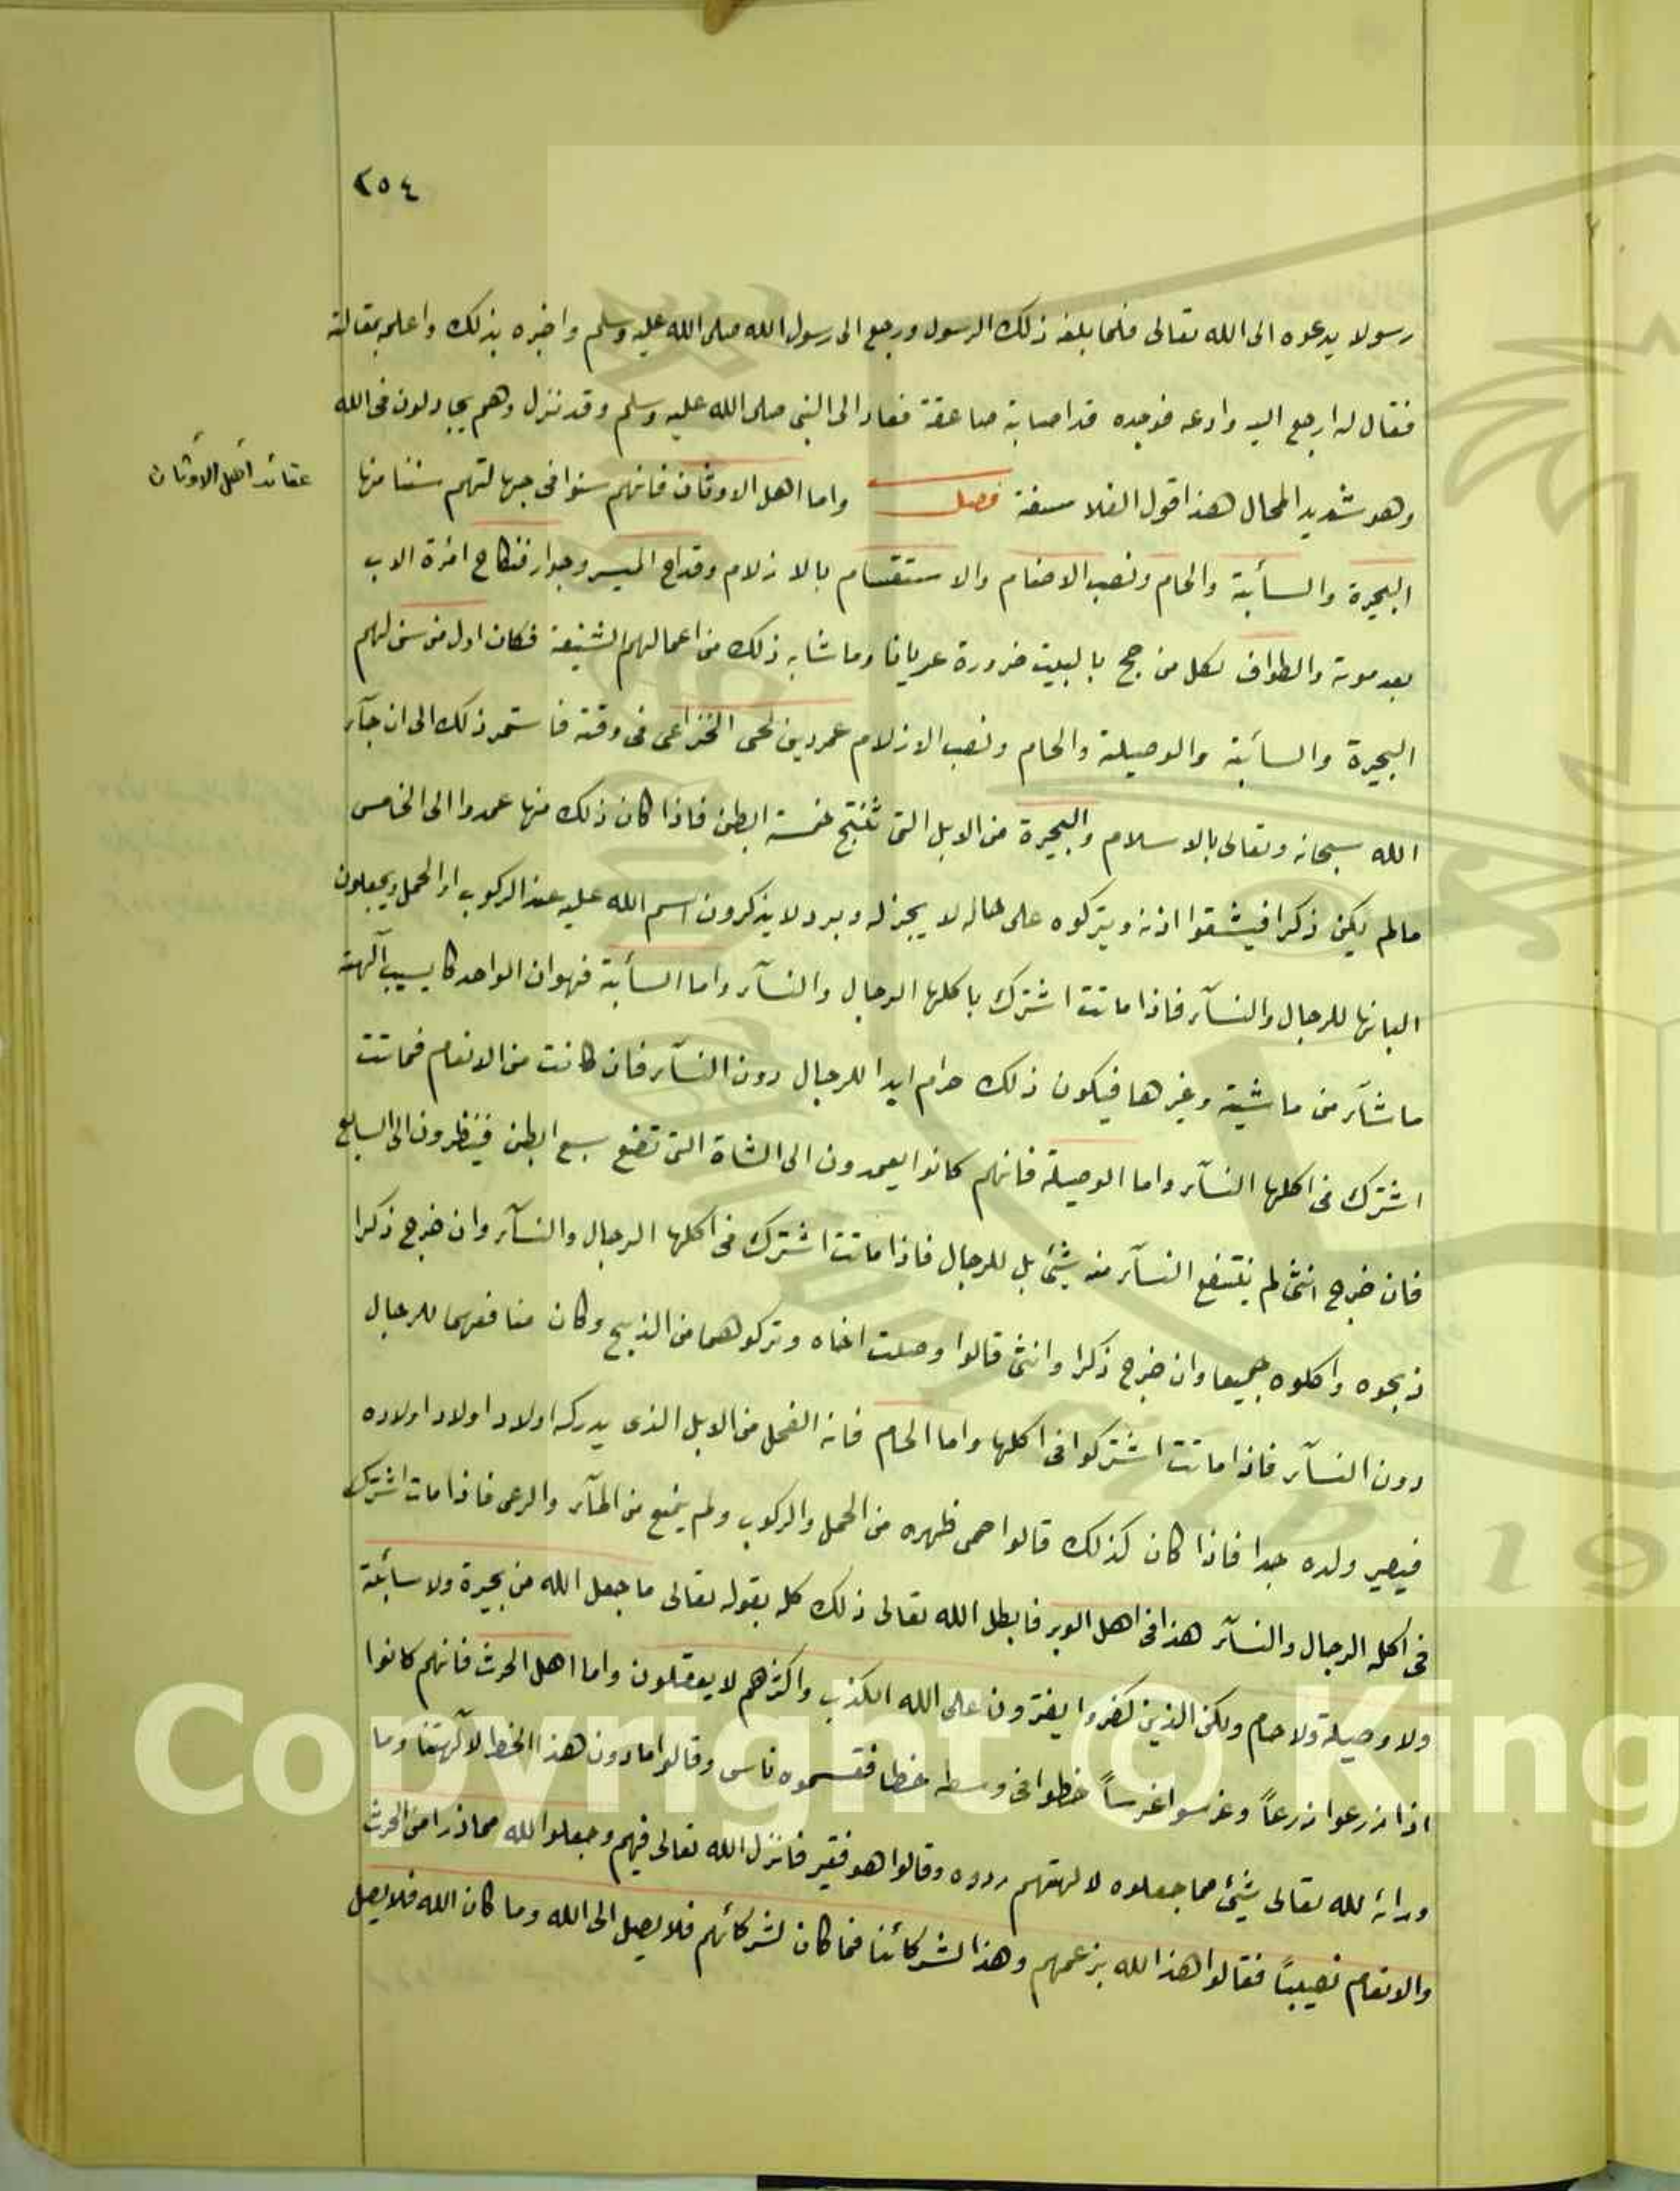 ٢٥٤
رسولا يدعوه الى الله تعالى فلما بلغه ذلك الرسول ورجع الى رسول الله صلى الله عليه وسلم واخبره بذلك واعلمه بمقالته
فقال له ارجع اليه وادعه فوجده قد اصابته صاعقة فعاد الى النبى صلى الله عليه وسلم وقد نزل وهم يجادلون فى الله
وهو شديد المحال هذا قول الفلاسفة فصل واما اهل الاوثان فانهم سنوا فى جهالتهم سننا منها
عقائد أهل الأوثان
البحيرة والسأبة والحام ونصب الاصنام والاستقسام بالازلام وقداح الميسر وجواز نكاح امرة الاب
بعد موته والطواف لكل من حج بالبيت ضرورة عريانا وما شابه ذلك من اعمالهم الشنيعة فكان اول من سن لهم
البحيرة والسائبة والوصيلة والحام ونصب الازلام عمرو بن لحى الخزاعى فى وقته فاستمر ذلك الى ان جآء
الله سبحانه وتعالى بالاسلام والبحيرة من الابل التى تنتج خمسة ابطن فاذا كان ذلك منها عمدوا الى الخامس
مالم يكن ذكرا فيشقوا اذنه ويتركوه على حاله لا يجز له وبر ولا يذكرون اسم الله عليه عند الركوب او الحمل ويجعلون
البانها للرجال والنسآء فاذا ماتت اشترك باكلها الرجال والنسآء واما السأبة فهو ان الواحد كا يسيب آلهة
ما شآء من ماشية وغيرها فيكون ذلك حرام ابدا للرجال دون النسآء فان كانت من الانعام فماتت
اشترك فى اكلها النسآء واما الوصيلة فانهم كانوا يعمدون الى الشاة التى تضع سبع ابطن فينظرون الى السابع
فان خرج انثى لم ينتفع النسآء منه بشيئ بل للرجال فاذا ماتت اشترك فى اكلها الرجال والنسآء وان خرج ذكرا
ذبحوه واكلوه جميعا وان خرج ذكرا وانثى قالوا وصلت اخاه وتركوهما من الذبح وكان منافعهما للرجال
دون النسآء فاذا ماتت اشتركوا فى اكلها واما الحام فانه الفحل من الابل الذى يدركه اولاد اولاد اولاده
فيصير ولده جدا فاذا كان كذلك قالوا حمى ظهره من الحمل والركوب ولم يمنع من المآء والرعى فاذا مات اشترك
فى اكله الرجال والنسآء هذا فى اهل الوبر فابطل الله تعالى ذلك كله بقوله تعالى ما جعل الله من بحيرة ولا سائبة
ولا وصيلة ولا حام ولكن الذين كفروا يفترون على الله الكذب واكثرهم لا يعقلون واما اهل الحرث فانهم كانوا
اذا زرعوا زرعاً وغرسوا غرساً خطوا فى وسطه خطا فقسموه ناس وقالوا ما دون هذا الخط لآلهتنا وما
ورائه لله تعالى شيئ مما جعلوه لالهتهم ردوه وقالوا هو فقير فانزل الله تعالى فيهم وجعلوا لله مما ذرا من الحرث
والانعام نصيباً فقالوا هذا لله بزعمهم وهذا لشركائنا فما كان لشركائهم فلا يصل الى الله وما كان الله فلا يصل
Copyright © King